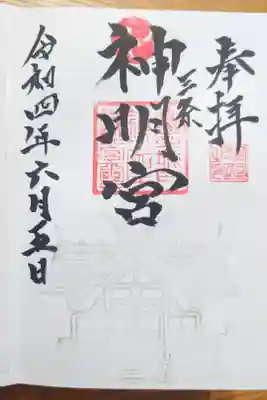 奉拝
神明宮
令和四年六月五日